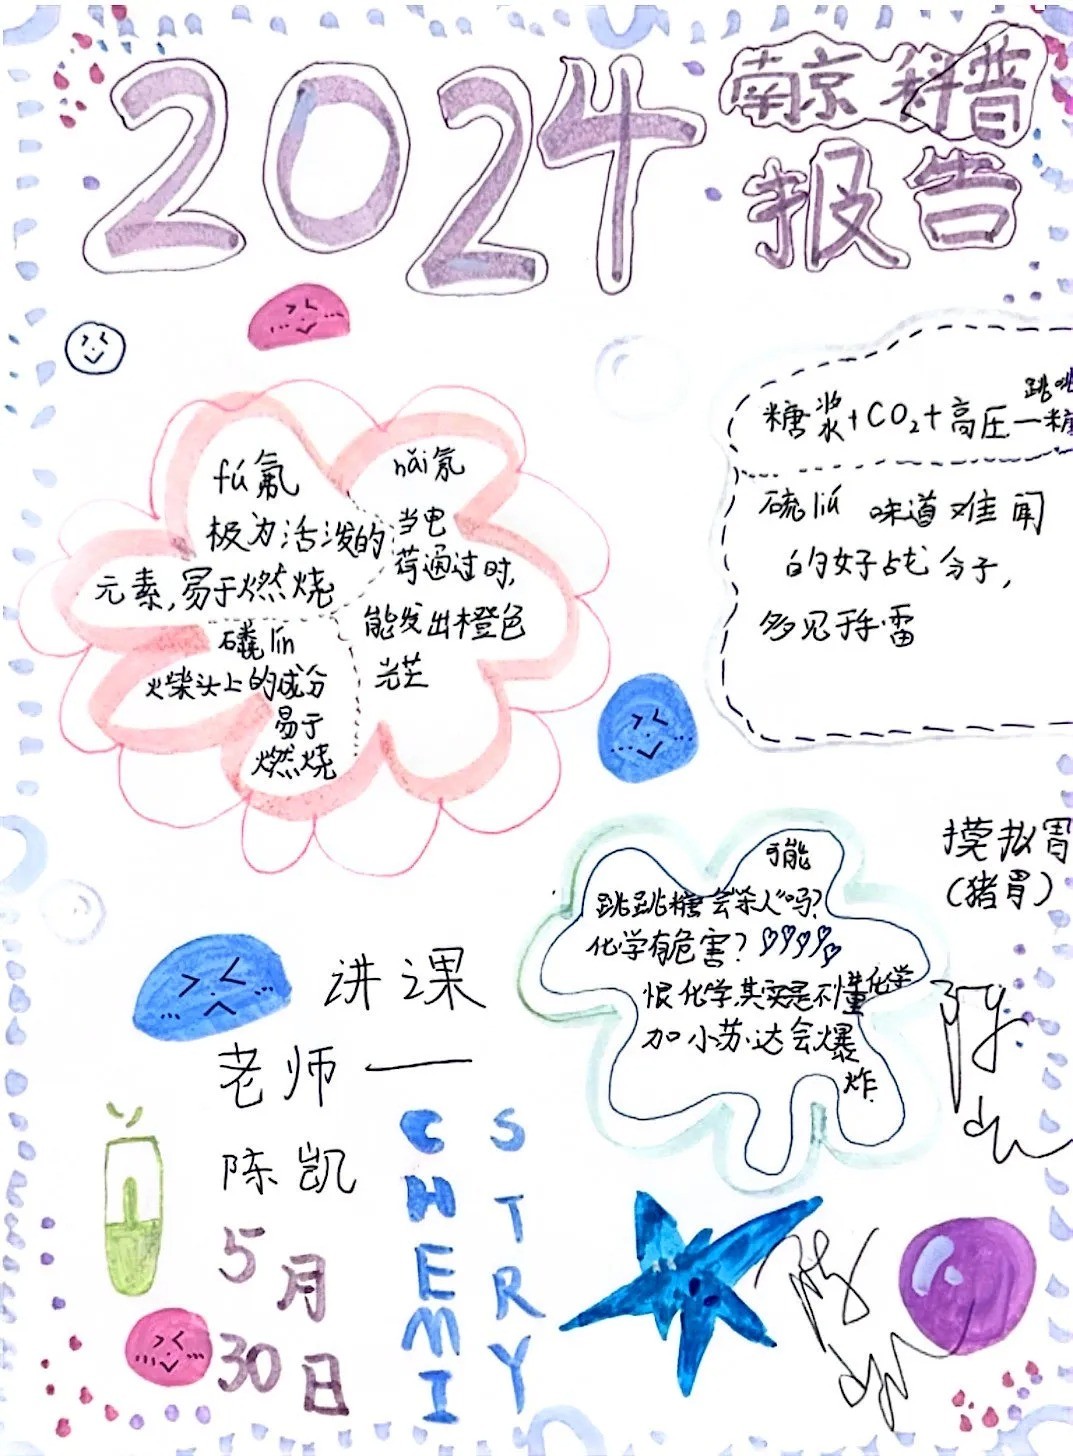 2024
南京科普
报告
fú氟
极为活泼的
元素,易于燃烧
磷lín
火柴头上的成分
易于
燃烧
nǎi氖
当电
荷通过时,
能发出橙色
光芒
跳跳
糖浆+CO₂+高压—糖
硫liú 味道难闻
的好战分子,
多见于手雷
可能
跳跳糖会"杀人"吗?
化学有危害?
恨化学其实是不懂化学
加小苏达会爆
炸
摸拟胃
(猪胃)
讲课
老师——
陈凯
5月
30日
CHEMI
STRY